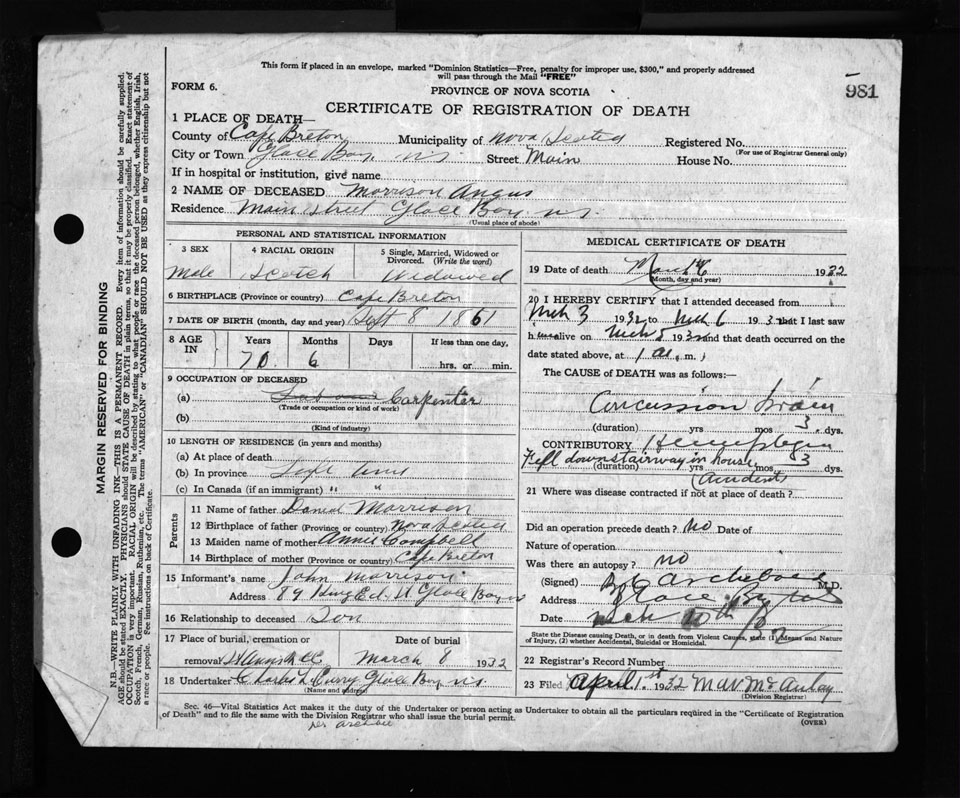 This form if placed in an envelope, marked "Dominion Statistics—Free, penalty for improper use, $300," and properly addressed
will pass through the Mail "FREE"
FORM 6.
PROVINCE OF NOVA SCOTIA
981
CERTIFICATE OF REGISTRATION OF DEATH
1 PLACE OF DEATH—
County of Cape Breton Municipality of Nova Scotia Registered No.
(For use of Registrar General only)
City or Town Glace Bay N.S. Street Main House No.
If in hospital or institution, give name
2 NAME OF DECEASED Morrison Angus
Residence Main street Glace Bay N.S.
(Usual place of abode)
PERSONAL AND STATISTICAL INFORMATION
3 SEX 4 RACIAL ORIGIN 5 Single, Married, Widowed or Divorced. (Write the word)
Male Scotch Widowed
6 BIRTHPLACE (Province or country) Cape Breton
7 DATE OF BIRTH (month, day and year) Sept 8 1861
8 AGE IN Years Months Days If less than one day,
70 6 hrs. or min.
9 OCCUPATION OF DECEASED
(a) Carpenter
(Trade or occupation or kind of work)
(b)
(Kind of industry)
10 LENGTH OF RESIDENCE (in years and months)
(a) At place of death
(b) In province Life time
(c) In Canada (if an immigrant) " "
Parents
11 Name of father Daniel Morrison
12 Birthplace of father (Province or country) Nova Scotia
13 Maiden name of mother Annie Campbell
14 Birthplace of mother (Province or country) Cape Breton
15 Informant's name John Morrison
Address 89 King Ed. St Glace Bay N.S.
16 Relationship to deceased Son
17 Place of burial, cremation or removal Date of burial
March 8 1932
18 Undertaker Charles L Curry Glace Bay N.S.
(Name and address)
MEDICAL CERTIFICATE OF DEATH
19 Date of death March 6 1932
(Month, day and year)
20 I HEREBY CERTIFY that I attended deceased from
Mch 3 1932 to Mch 6 1932 that I last saw
him alive on Mch 5 1932 and that death occurred on the
date stated above, at 1 a.m.
The CAUSE of DEATH was as follows:—
Concussion brain
(duration) yrs mos 3 dys.
CONTRIBUTORY Hemiplegia
Fell down stairway in house
(duration) yrs mos 3 dys.
(Accident)
21 Where was disease contracted if not at place of death?
Did an operation precede death? No Date of
Nature of operation
Was there an autopsy? no
(Signed) M.D.
Address Glace Bay
Date Mch 10th
State the Disease causing Death, or in death from Violent Causes, state (1) Means and Nature
of Injury, (2) whether Accidental, Suicidal or Homicidal.
22 Registrar's Record Number
23 Filed April 1st 1932 McAulay
(Division Registrar)
Sec. 46—Vital Statistics Act makes it the duty of the Undertaker or person acting as Undertaker to obtain all the particulars required in the "Certificate of Registration
of Death" and to file the same with the Division Registrar who shall issue the burial permit.
(OVER)
MARGIN RESERVED FOR BINDING
N.B.—WRITE PLAINLY WITH UNFADING INK—THIS IS A PERMANENT RECORD. Every item of information should be carefully supplied.
AGE should be stated EXACTLY. PHYSICIANS should STATE CAUSE OF DEATH in plain terms, so that it may be properly classified. Exact statement of
OCCUPATION is very important. RACIAL ORIGIN will be described by stating to what people or race the deceased person belonged, whether English, Irish,
Scotch, French, German, Russian, Ruthenian, etc. The terms "AMERICAN" or "CANADIAN" SHOULD NOT BE USED as they express citizenship but not
a race or people. See instructions on back of Certificate.